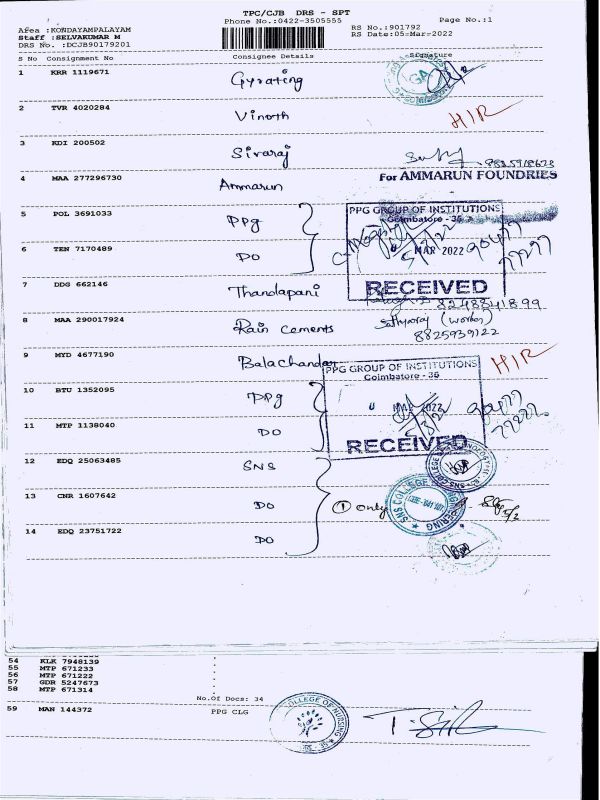 TPC/CJB DRS - SPT
Phone No.:0422-3505555
Page No.:1
Area :KONDAYAMPALAYAM
Staff :SELVAKUMAR M
DRS No. :DCJB90179201
RS No.:901792
RS Date:05-Mar-2022
S No Consignment No Consignee Details Signature
1 KRR 1119671 Gyrating
2 TVR 4020284 Vinoth HIR
3 KDI 200502 Sivaraj 8825918623
For AMMARUN FOUNDRIES
4 MAA 277296730 Ammarun
PPG GROUP OF INSTITUTIONS
Coimbatore - 35
5 POL 3691033 PPg
MAR 2022
6 TEN 7170489 DO
RECEIVED
7 DDG 662146 Thandapani 8248841899
8 MAA 290017924 Rain Cements (Worker)
8825939122
9 MYD 4677190 Balachandar HIR
PPG GROUP OF INSTITUTIONS
Coimbatore - 35
10 BTU 1352095 PPg
MAR 2022
11 MTP 1138040 DO
RECEIVED
12 EDQ 25063485 SNS
13 CNR 1607642 DO ① only
SNS COLLEGE OF ENGINEERING
14 EDQ 23751722 DO
54 KLK 7948139 :
55 MTP 671233 :
56 MTP 671222 :
57 GDR 5247673 :
58 MTP 671314 :
No.Of Docs: 34
59 MAN 144372 PPG CLG
COLLEGE OF NURSING